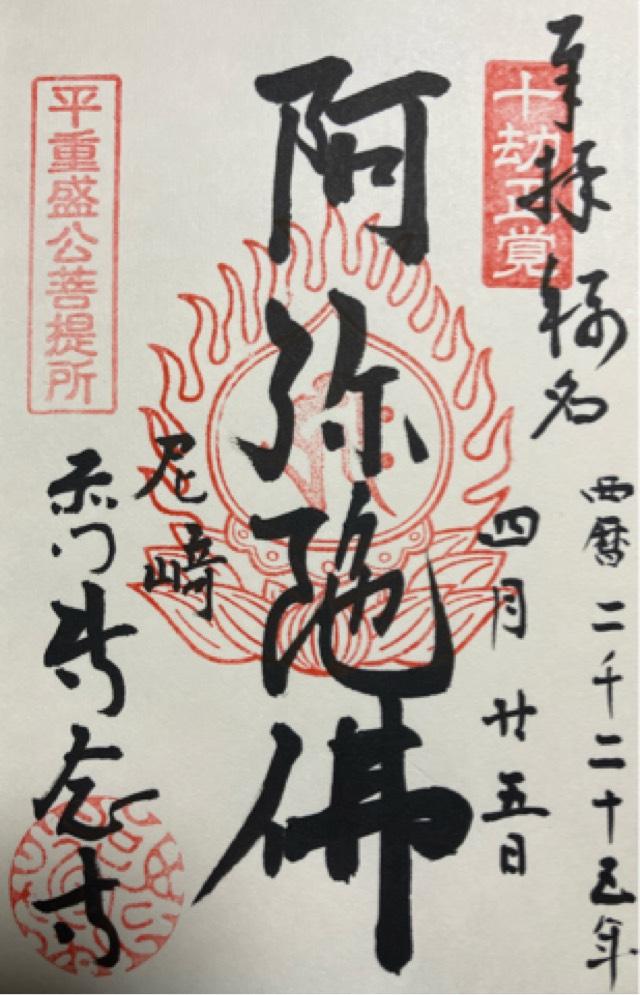 十劫正覚
奉拝 稱名
西暦二千二十五年
四月廿五日
阿弥陀佛
尼崎
赤門専念寺
平重盛公菩提所